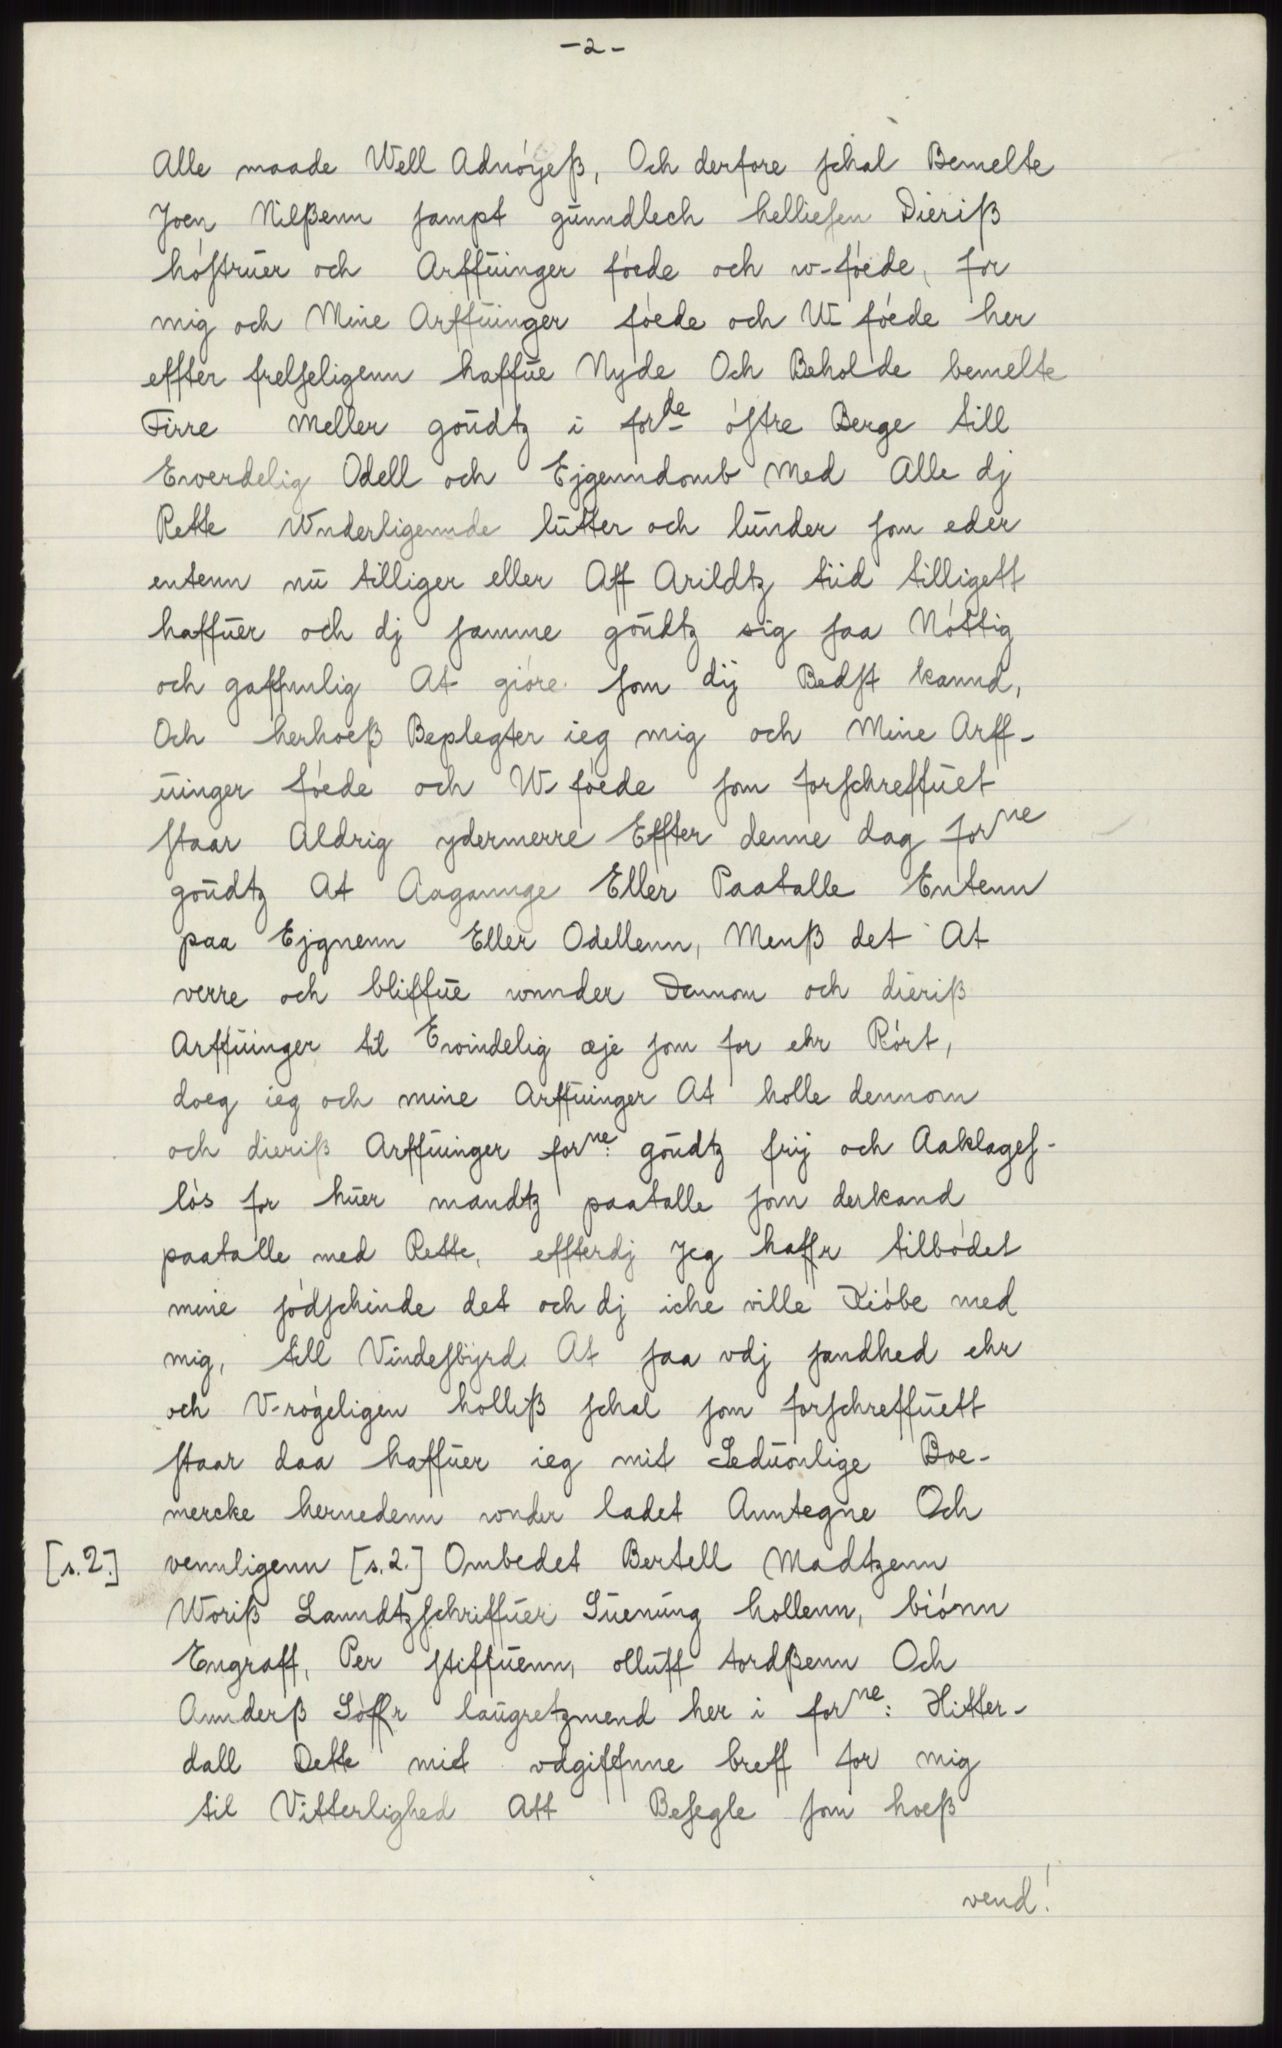 -2-
Alle maade Well Adnóyeß, Och derfore schal Bemelte
Joen Nilßenn sampt gūnndlech helliesen Dieriß
hóstruer och Arffūinger fóede och w-fóede, for
mig och Mine Arffūinger fóede och W-fóede her
effter frelseligenn haffūe Nyde Och Beholde bemelte
Firre Meller goūdtz i forde óstre Berge till
Ewerdelig Odell och Ejgenndomb Med Alle dj
Rette Wnderligennde lūtter och lūnder som eder
entenn nū tilliger eller Aff Arildtz tiid tilligett
haffūer och dj samme goūdtz sig saa Nóttig
och gaffnnlig At gióre som dij Bedst kannd,
Och herhoeß Beplegter ieg mig och Mine Arff-
ūinger fóede och W-fóede som forschreffūet
staar Aldrig ydermerre Effter denne dag forne
goūdtz At Aagannge Eller Paatalle Entenn
paa Ejgnenn Eller Odellenn, Menß det At
verre och bliffūe wnnder Dennom och dieriß
Arffūinger til Ewindelig æje som for ehr Rórt,
doeg ieg och mine Arffūinger At holle dennom
och dieriß Arffūinger forne: goūdtz frij och Aaklages-
lós for hūer mandtz paatalle som derkand
paatalle med Rette, effterdj Jeg haffr tilbódet
mine sódschinde det och dj iche ville Kióbe med
mig, till Vindesbÿrd At saa vdj sandhed ehr
och V-rógeligen holliß schal som forschreffūett
staar daa haffūer ieg mit Sedūonlige Boe-
mercke hernedenn wnder ladet Anntegne Och
[s.2.] vennligenn [s.2.] Ombedet Bertell Madtzenn
Woriß Lanndtzschriffūer Sūenūng hollenn, biónn
Engraff, Per stiffūenn, ollūff tordßenn Och
Annderß Sóffr laūgretzmend her i forne: Hitter-
dall Dette mit vdgiffnne breff for mig
til Vitterlighed Att Besegle som hoeß
vend!